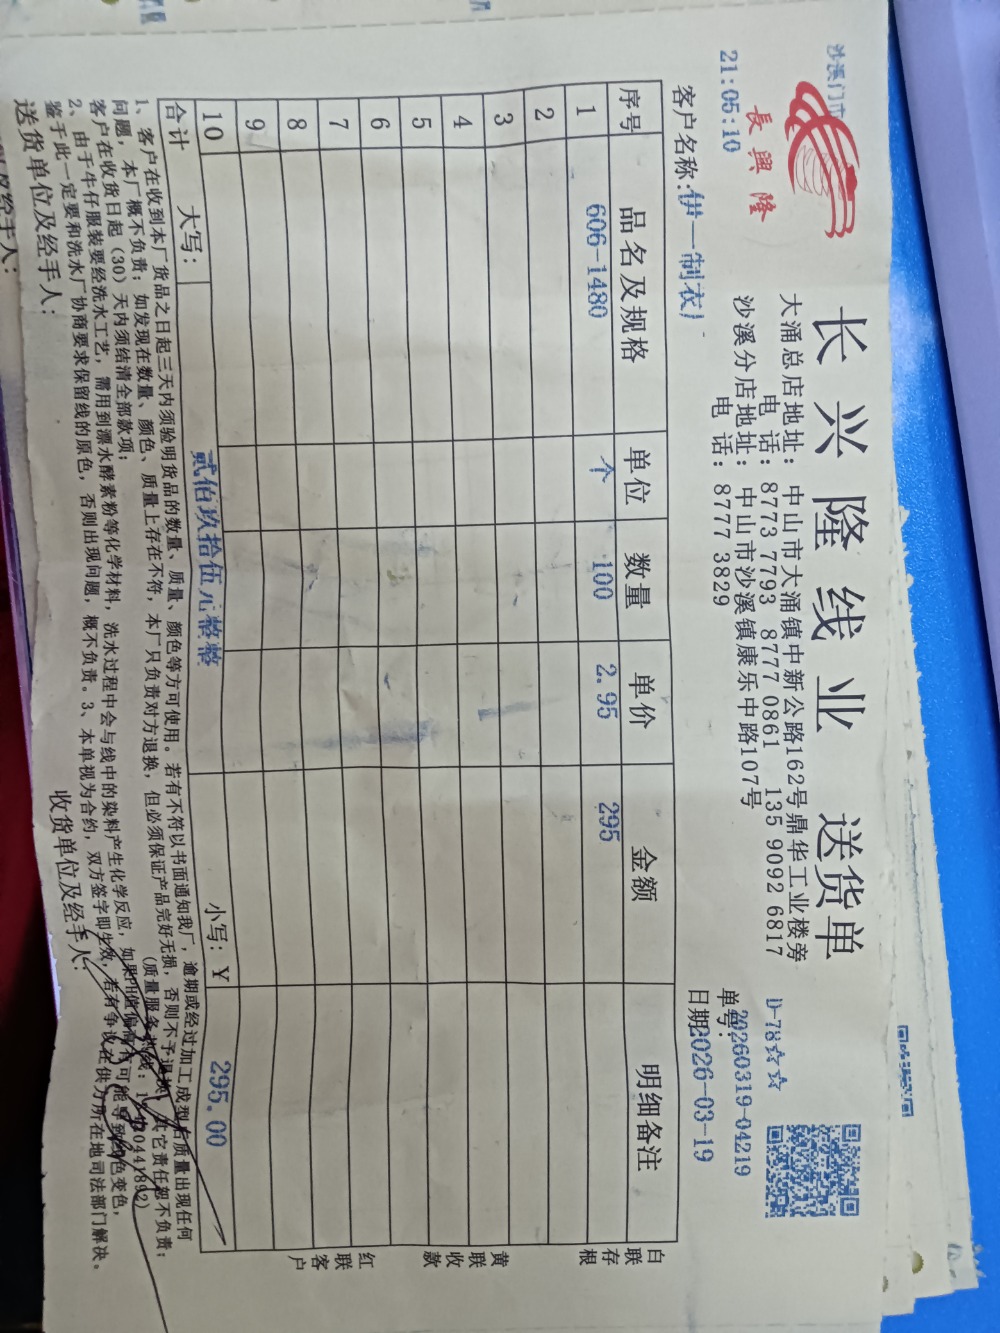 沙溪门市
長興隆
21:05:10
长兴隆线业 送货单
大涌总店地址：中山市大涌镇中新公路162号鼎华工业楼旁
电 话：8773 7793 8777 0861 135 9092 6817
沙溪分店地址：中山市沙溪镇康乐中路107号
电 话：8777 3829
D-78☆☆
单号：20260319-04219
日期2026-03-19
客户名称：伊一制衣厂
序号 品名及规格 单位 数量 单价 金额 明细备注
1 606-1480 个 100 2.95 295
2
3
4
5
6
7
8
9
10
合计 大写： 贰佰玖拾伍元整整 小写：￥ 295.00
白联存根
黄联收款
红联客户
1、客户在收到本厂货品之日起三天内须验明货品的数量、质量、颜色等方可使用。若有不符以书面通知我厂，逾期或经过加工成型后质量出现任何
问题，本厂概不负责；如发现在数量、颜色、质量上存在不符，本厂只负责对方退换，但必须保证产品完好无损，否则不予退换，其它责任恕不负责；
客户在收货日起（30）天内须结清全部款项； （质量服务热线：
2、由于牛仔服装要经洗水工艺，需用到漂水酵素粉等化学材料，洗水过程中会与线中的染料产生化学反应，如果PH值偏高有可能导致颜色变色，
鉴于此一定要和洗水厂协商要求保留线的原色，否则出现问题，概不负责。3、本单视为合约，双方签字即生效，若有争议在供方所在地司法部门解决。
送货单位及经手人： 收货单位及经手人：
及经手人：